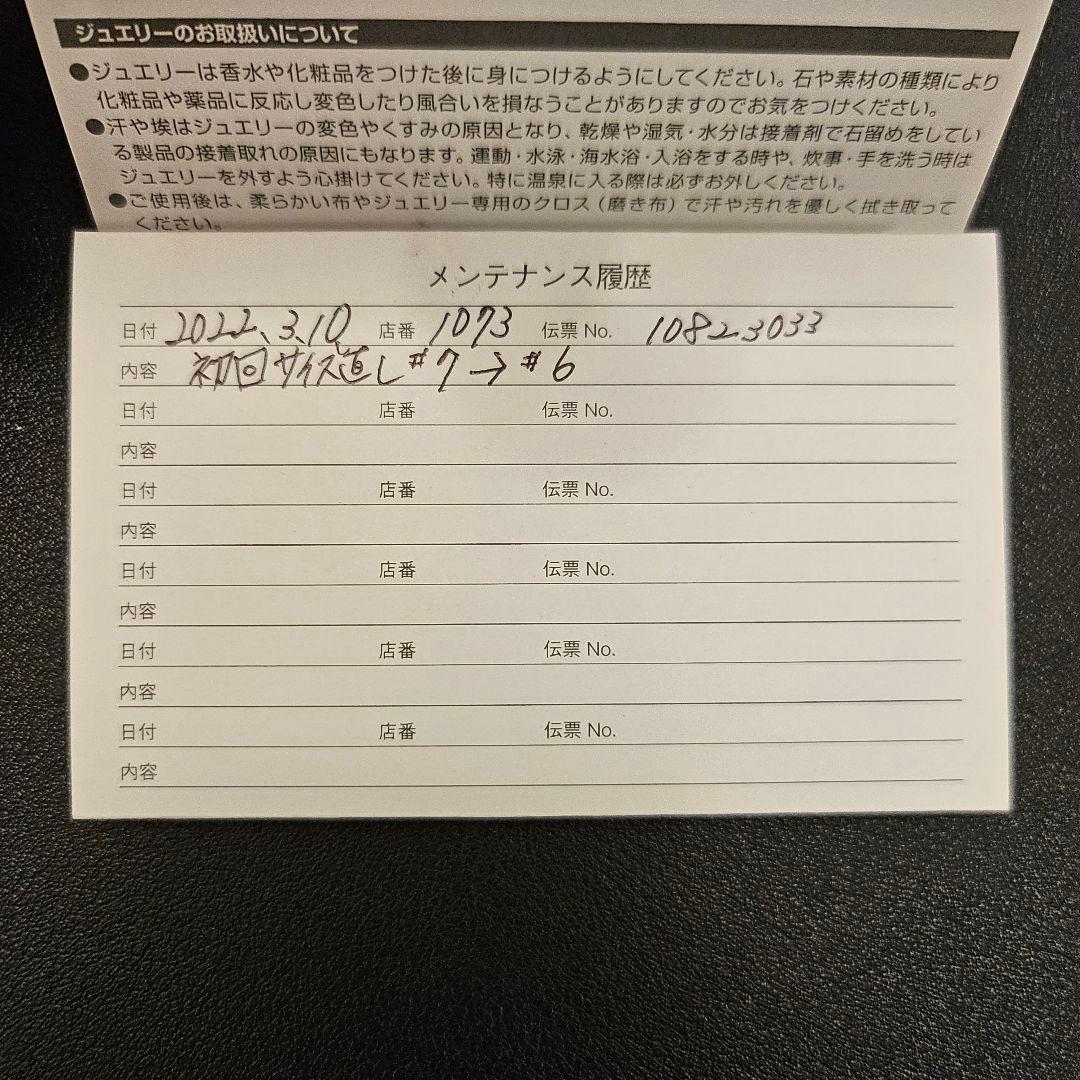 ジュエリーのお取扱いについて
●ジュエリーは香水や化粧品をつけた後に身につけるようにしてください。石や素材の種類により
化粧品や薬品に反応し変色したり風合いを損なうことがありますのでお気をつけください。
●汗や埃はジュエリーの変色やくすみの原因となり、乾燥や湿気・水分は接着剤で石留めをしてい
る製品の接着取れの原因にもなります。運動・水泳・海水浴・入浴をする時や、炊事・手を洗う時は
ジュエリーを外すよう心掛けてください。特に温泉に入る際は必ずお外しください。
●ご使用後は、柔らかい布やジュエリー専用のクロス（磨き布）で汗や汚れを優しく拭き取って
ください。
メンテナンス履歴
日付 2022、3、10 店番 1073 伝票 No. 10823033
内容 初回サイズ直し #7→#6
日付 店番 伝票 No.
内容
日付 店番 伝票 No.
内容
日付 店番 伝票 No.
内容
日付 店番 伝票 No.
内容
日付 店番 伝票 No.
内容